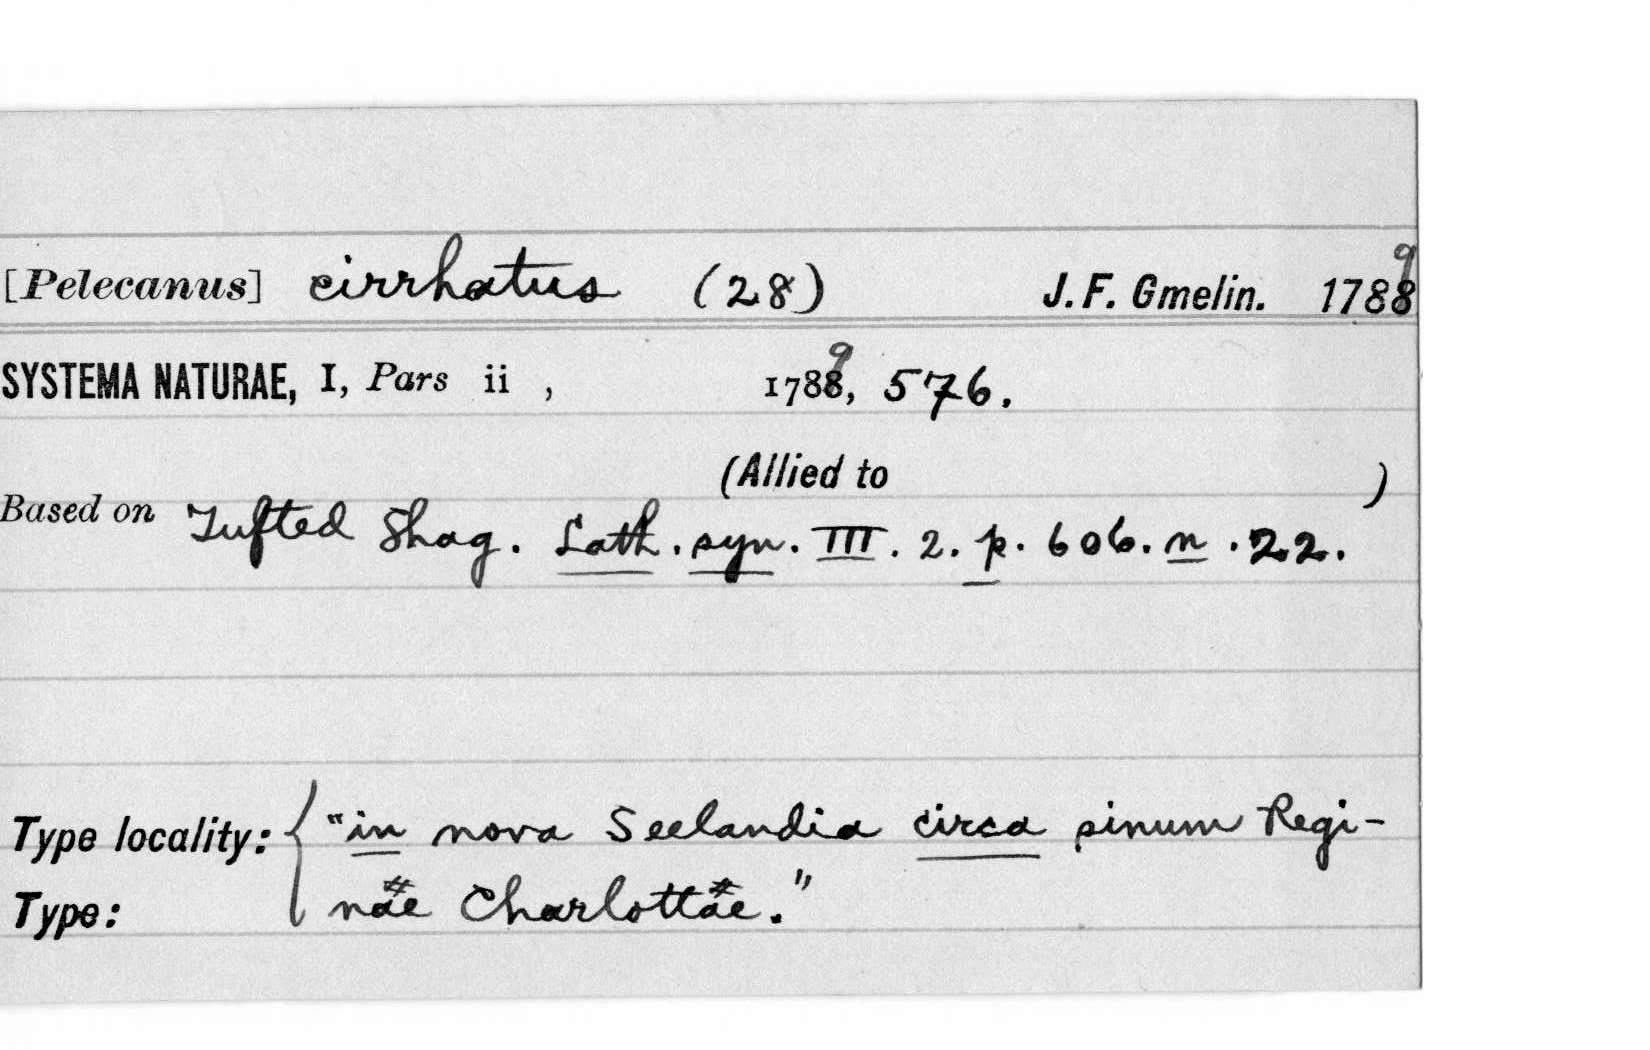 [Pelecanus] cirrhatus (28) J. F. Gmelin. 1789
SYSTEMA NATURAE, I, Pars ii , 1789, 576.
(Allied to )
Based on Tufted Shag. Lath. syn. III. 2. p. 606. n. 22.
Type locality: { "in nova Seelandia circa sinum Regi-
Type: nae Charlottae."